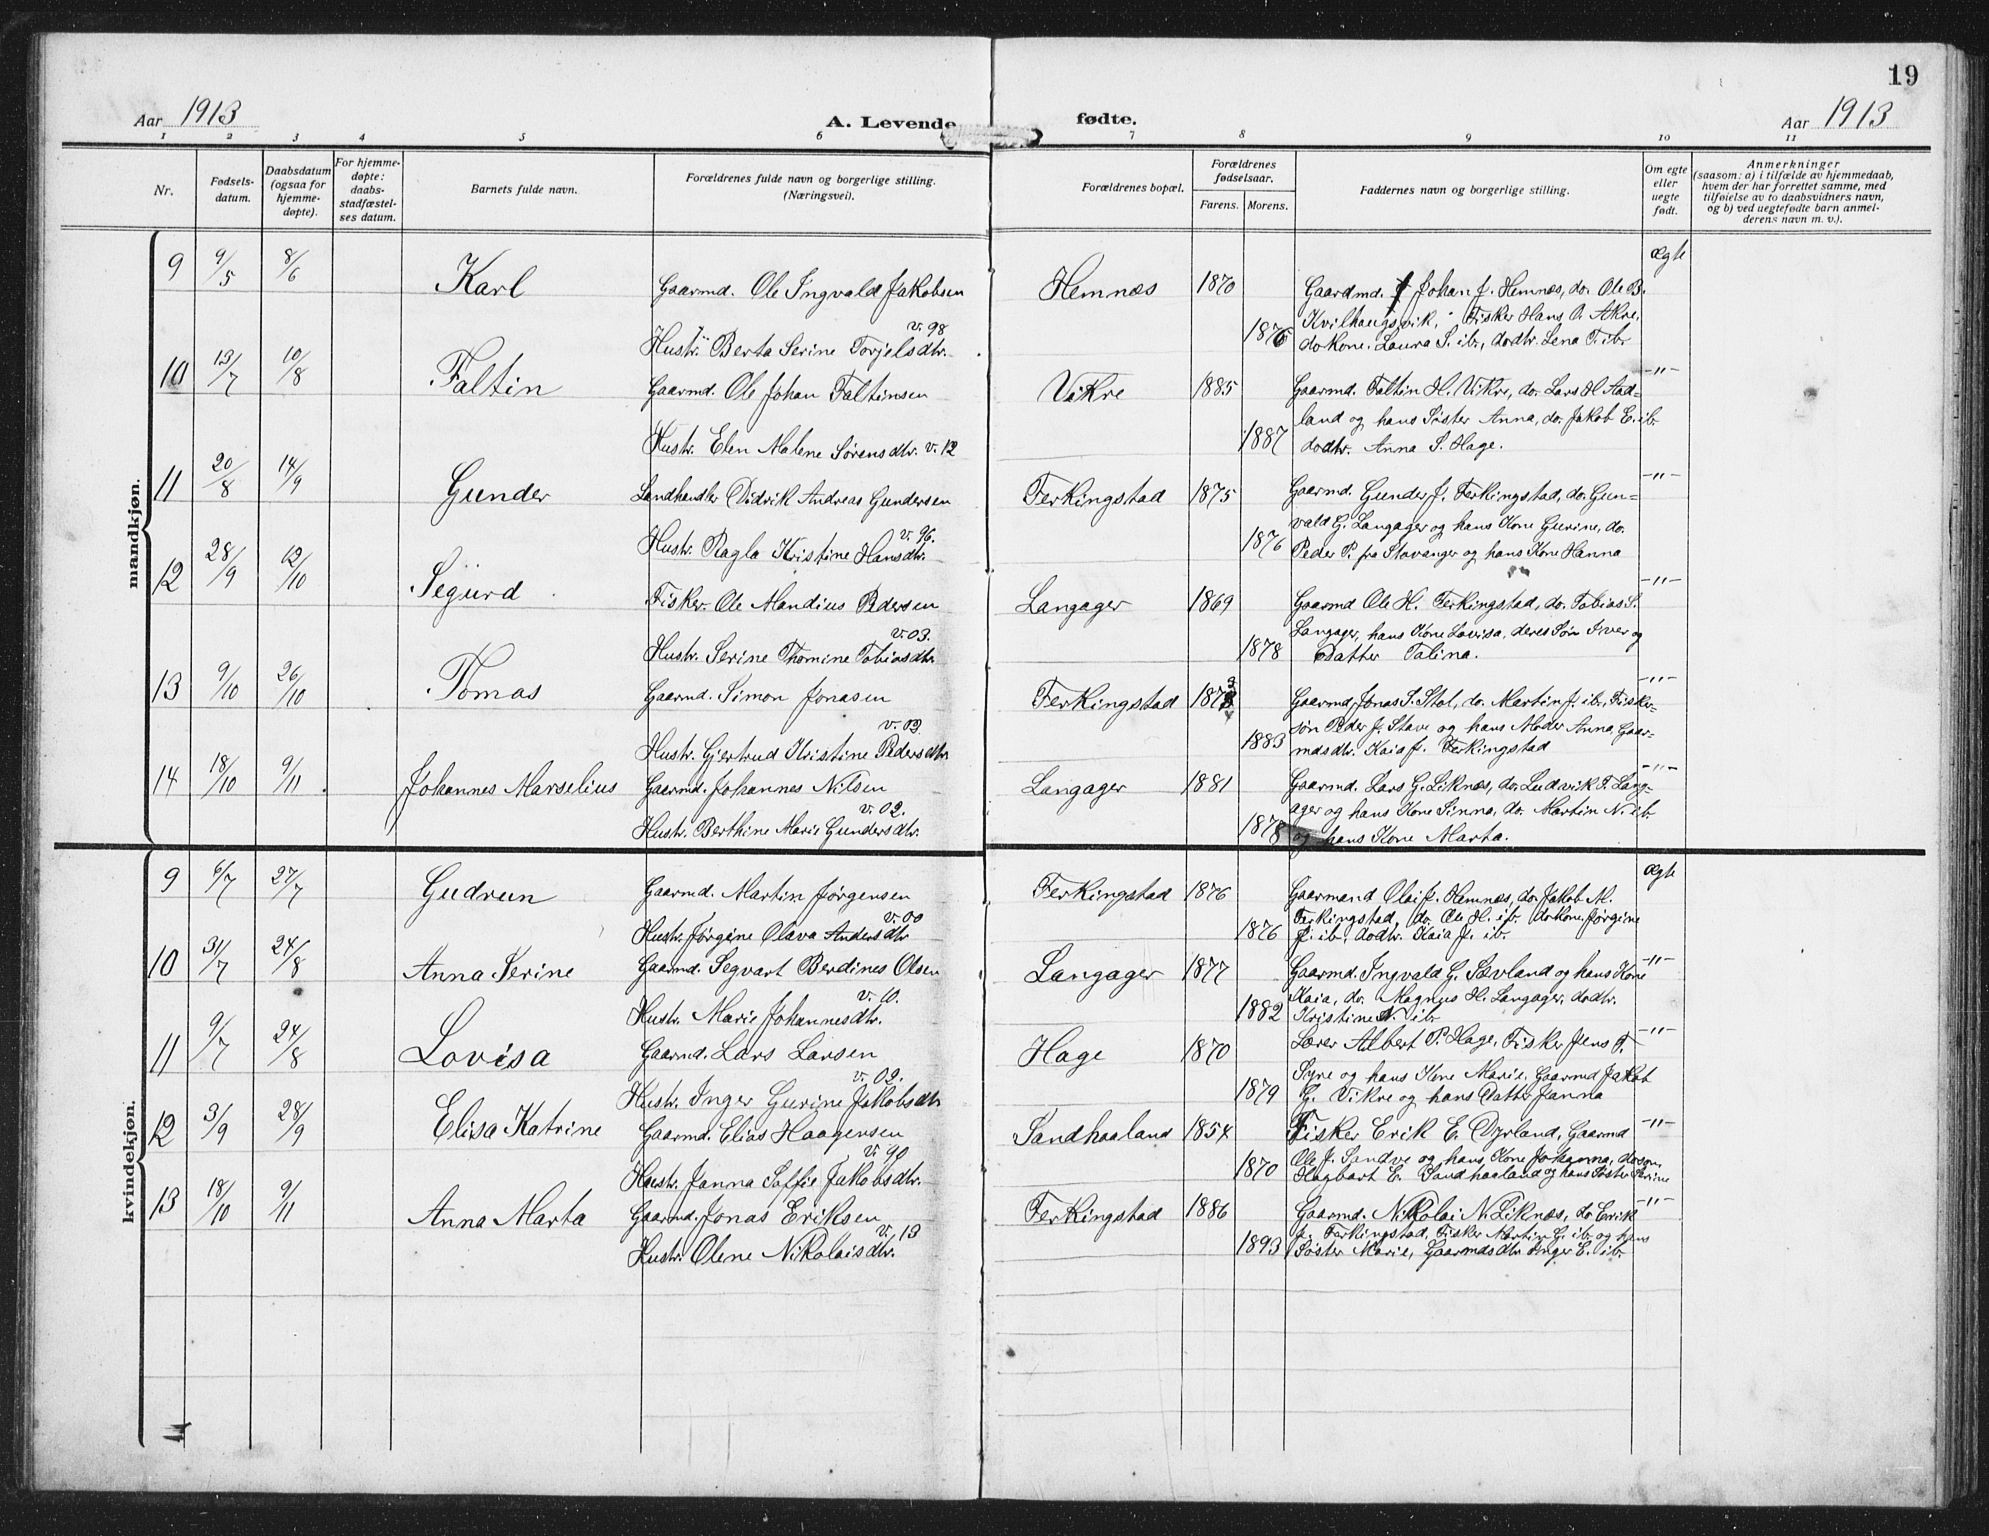 19
Aar 1913 A. Levende fødte. Aar 1913
1 2 3 4 5 6 7 8 9 10 11
Nr. Fødsels-datum. Daabsdatum (ogsaa for hjemme-døpte). For hjemme-døpte: daabs-stadfæstel-ses datum. Barnets fulde navn. Forældrenes fulde navn og borgerlige stilling. (Næringsvei). Forældrenes bopæl. Forældrenes fødselsaar. Farens. Morens. Faddernes navn og borgerlige stilling. Om egte eller uegte født. Anmerkninger (saasom: a) i tilfælde av hjemmedaab, hvem der har forrettet samme, med tilføielse av to daabsvidners navn, og b) ved uegtefødte barn anmel-derens navn m. v.).
mandkjøn.
9 9/5 8/6 Karl Gaarmd. Ole Ingvald Jakobsen Hemnæs 1870 Gaardmd. Johan J. Hemnæs, do. Ole B. ægte
Kvilhaugsvik, Fisker Hans O. Akre,
v. 98
Hustr. Berta Serine Torjelsdtr. 1876 do Kone. Laura S. ib., dodtr. Lena T. ib.
10 13/7 10/8 Faltin Gaarmd. Ole Johan Faltinsen Vikre 1885 Gaarmd. Faltin H. Vikre, do. Lars H. Aad- -"-
land og hans Søster Anna, do. Jakob E. ib.
Hustr. Elen Malene Sørensdtr. v. 12 1887 dodtr. Anna S. Hage.
11 20/8 14/9 Gunder Landhandler Didrik Andreas Gundersen Ferkingstad 1875 Gaarmd. Gunder J. Ferkingstad, do. Gun- -"-
vald G. Langager og hans Kone Gurine, do.
v. 96.
Hustr. Ragla Kristine Hansdtr. 1876 Peder P. fra Stavanger og hans Kone Hanna
12 28/9 12/10 Sigurd Fisker Ole Mandius Pedersen Langager 1869 Gaarmd Ole H. Ferkingstad, do. Tobias S. -"-
Langager, hans Kone Lovisa, deres Søn Iver og
v. 03.
Hustr. Serine Thomine Tobiasdtr. 1878 Datter Talina.
13 9/10 26/10 Tomas Gaarmd. Simon Jonasen Ferkingstad 1873 Gaarmd. Jonas S. Stol, do. Martin J. ib., Fisker- -"-
søn Peder J. Stave og hans Moder Anna, Gaar-
v. 03.
Hustr. Gjertrud Kristine Pedersdtr 1883 mdsdtr. Kaia J. Ferkingstad
14 18/10 9/11 Johannes Marselius Gaarmd. Johannes Nilsen Langager 1881 Gaarmd. Lars G. Liknæs, do. Ludvik T. Lang- -"-
ager og hans Kone Sinna, do. Martin N. ib
v. 02.
Hustr. Berthine Marie Gundersdtr. 1878 og hans Kone Marta.
kvindekjøn.
9 6/7 27/7 Gudrun Gaarmd. Martin Jørgensen Ferkingstad 1876 Gaarmand Olai J. Hemnæs, do. Jakob M. ægte
Ferkingstad, do. Ole H. ib. do Kone Jørgine
v. 00
Hustr. Jørgine Olava Andersdtr 1876 J. ib., dodtr. Kaia J. ib.
10 31/7 24/8 Anna Serine Gaarmd. Segvart Berdines Olsen Langager 1877 Gaarmd. Ingvald G. Sævland og hans Kone -"-
Kaia, do. Magnus H. Langager, dodtr.
v. 10.
Hustr. Marie Johannesdtr. 1882 Kristine N. ib.
11 9/7 24/8 Lovisa Gaarmd. Lars Larsen Hage 1870 Lærer Albert P. Hage, Fisker Jens T. -"-
v. 02.
Hustr. Inger Gurine Jakobsdtr 1879 Syre og hans Kone Marie, Gaarmd Jakob
G. Vikre og hans Datter Janna
12 3/9 28/9 Elisa Katrine Gaarmd. Elias Haagensen Sandhaaland 1854 Fisker Erik E. Dyrland, Gaarmd -"-
Ole J. Sandve og hans Kone Johanna, dosøn
v. 90
Hustr. Janna Soffie Jakobsdtr. 1870 Hagbart E. Sandhaaland og hans Søster Serine
13 18/10 9/11 Anna Marta Gaarmd. Jonas Eriksen Ferkingstad 1886 Gaarmd. Nikolai N. Liknæs, do Erik -"-
J. Ferkingstad, Fisker Martin G. ib. og hans
v. 13
Hustr. Olene Nikolaisdtr. 1893 Søster Marie, Gaarmdsdtr Inger E. ib.